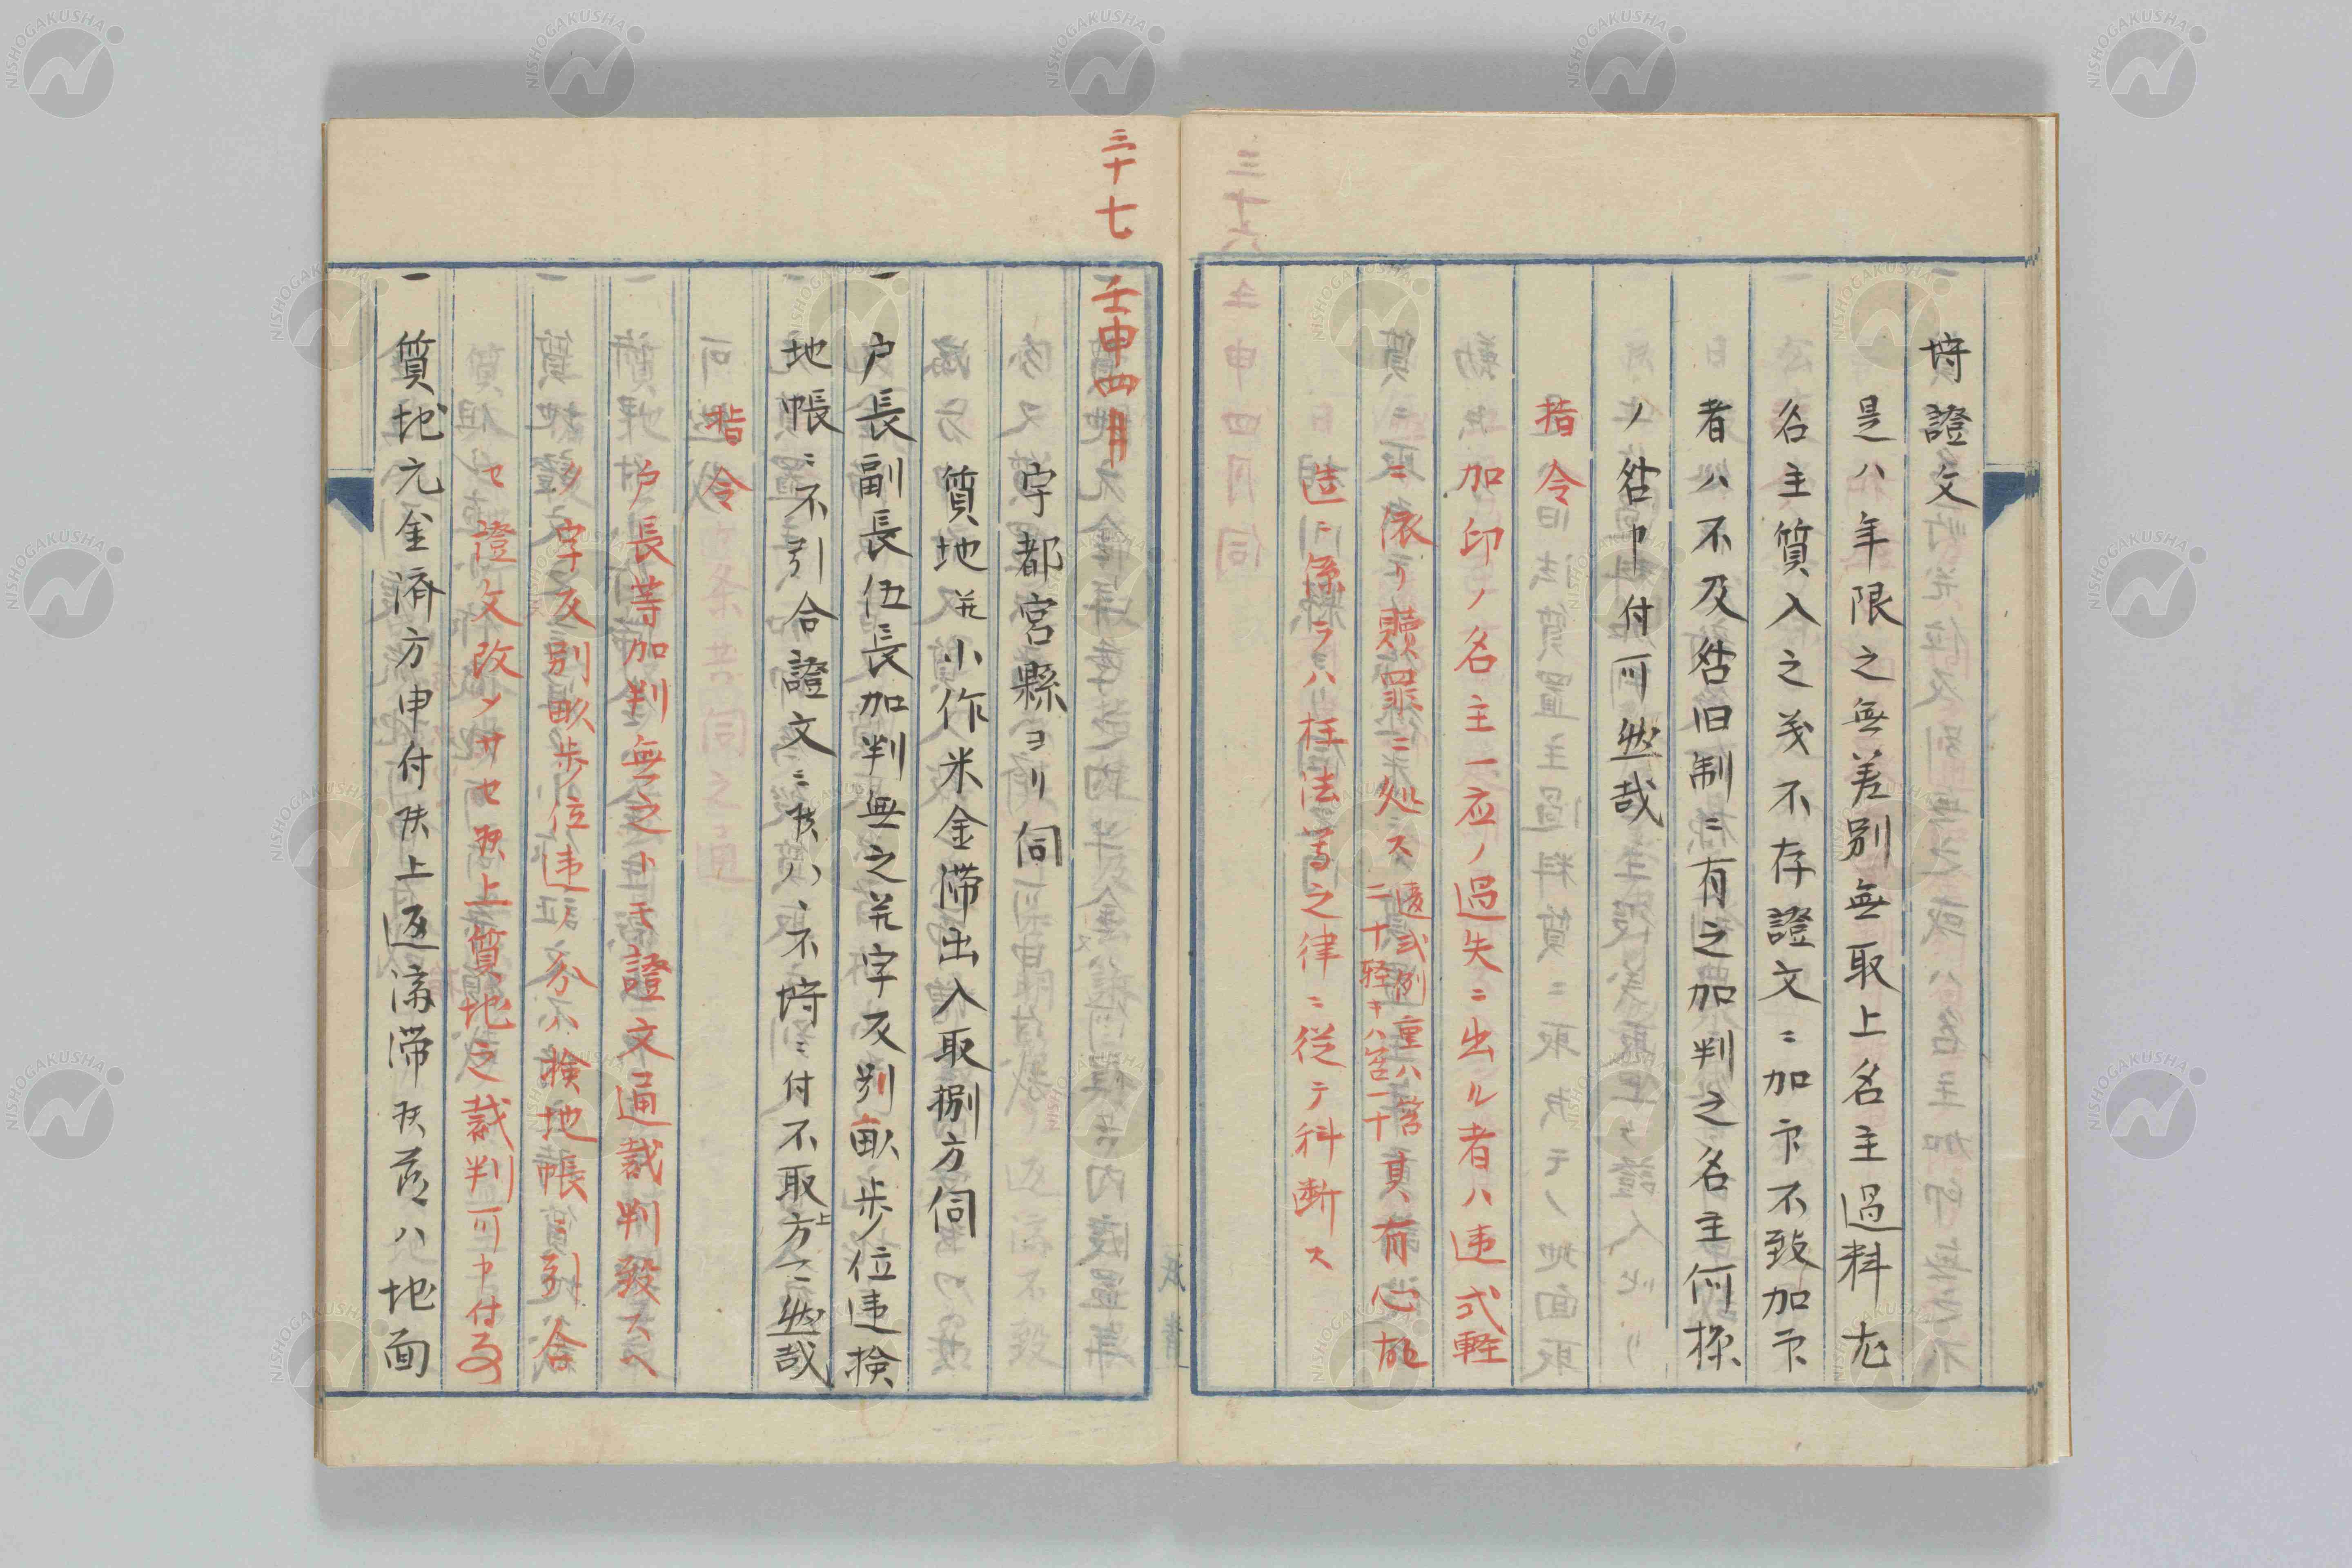 埒證文
是ハ年限之無差別無取上名主過料尤
名主質入之義不存證文ニ加印不致加印
者ハ不及咎旧制ニ有之加判之名主何様
ノ咎申付可然哉
指令
加印ノ名主一応ノ過失ニ出ル者ハ違式軽
ニ依リ贖罪ニ処ス違式例重ハ笞二十軽キハ笞一十其有心故
造ニ係ラハ枉法等之律ニ従テ科断ス
三十七
壬申四月
宇都宮縣ヨリ伺
質地并小作米金滞出入取捌方伺
一戸長副長伍長加判無之并字反別畝歩位違検
地帳ニ不引合證文ニ候ハヽ不埒ニ付不取上方ニ然哉
指令
戸長等加判無之トモ證文通裁判致スヘ
シ字反別畝歩位違ノ分ハ検地帳ニ引合
セ證文改メサセ候上質地之裁判可申付事
一質地元金済方申付候上返済滞候節ハ地面
NISHOGAKUSHA